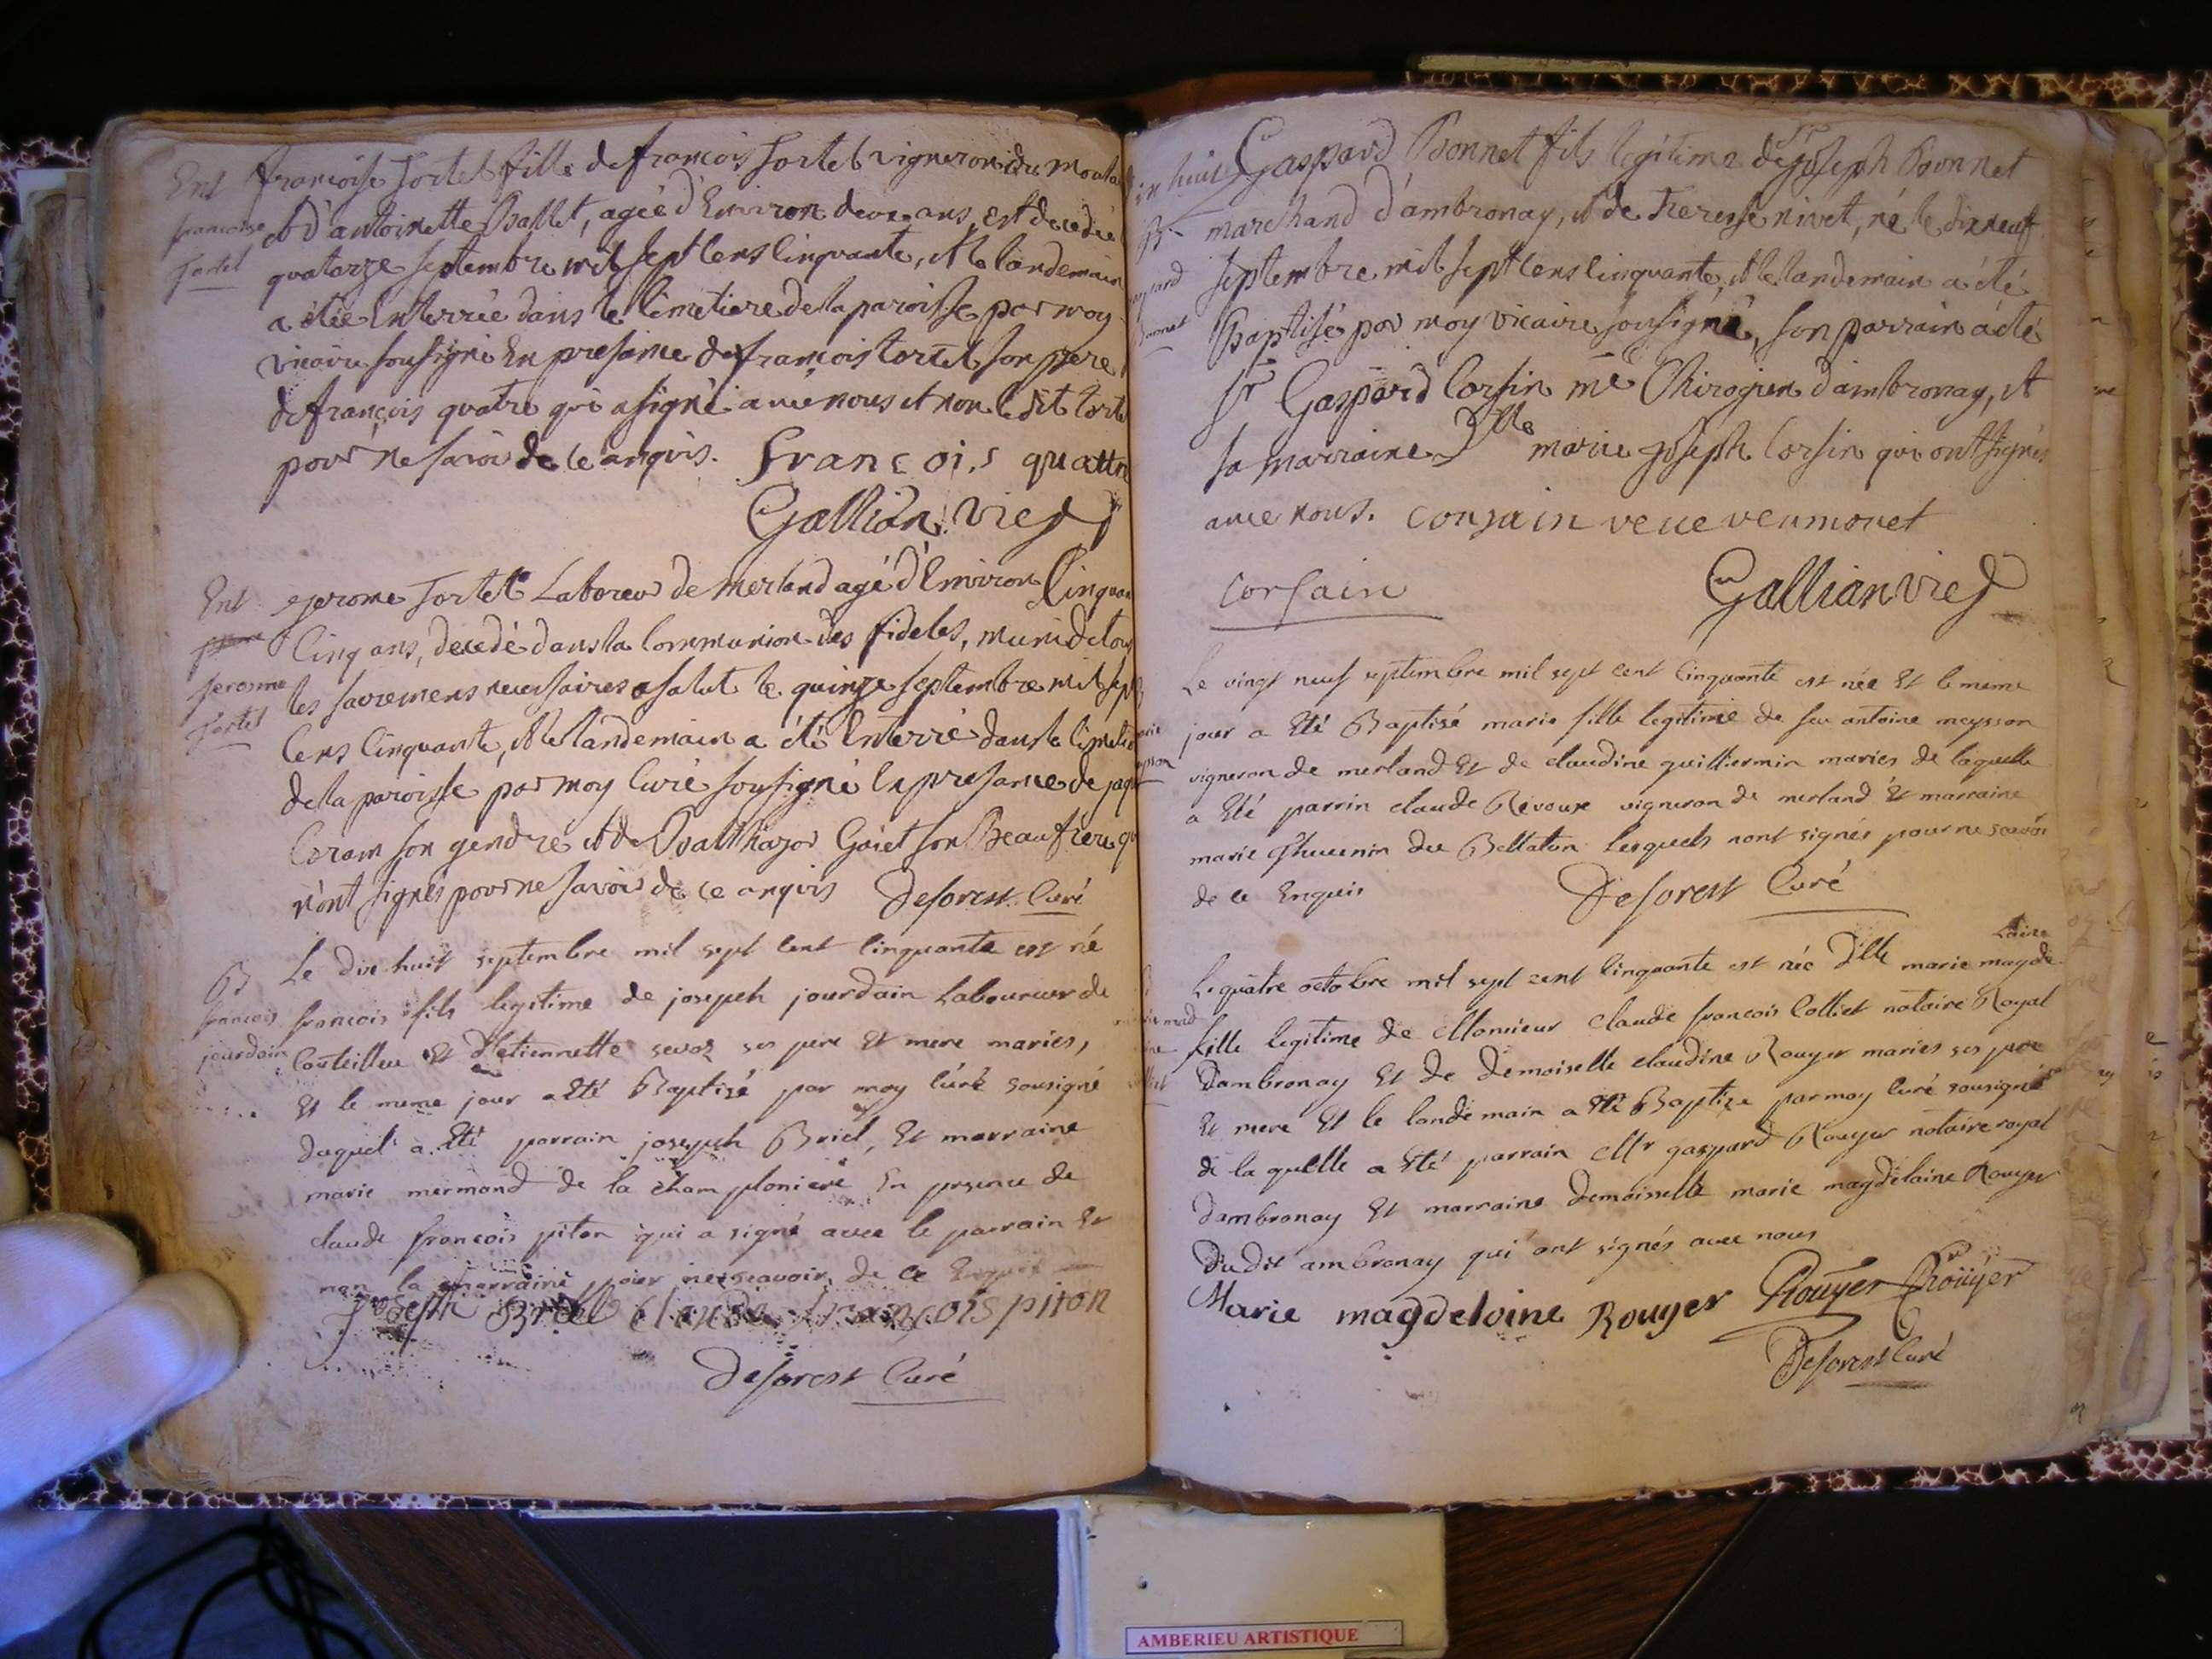 Ent
françoise
Tortel
françoise Tortel fille de françois Tortel vigneron du
et d'antoinette Ballet, agée d'Environ deux ans, est decedée
quatorze septembre mil sept cens cinquante, et le landemain
a étée Enterrée dans le cimetiere de la paroisse par moy
vicaire soussigné En presance de françois tortel son pere
de françois quatre qui a signé avec nous et non le dit
pour ne savoir de ce anquis. François quattre
Gallian vic
Ent
Jerosme
Tortel
Jerome Tortel Laboreur de merland agé d'Environ
Cinq ans, decedé dans la Communion des fideles, muni de tous
les sacremens necessaires a salut le quinze septembre mil sept
cens cinquante, et le landemain a été Enterré dans le
de la paroisse par moy Curé soussigné En presance de
son gendre et de Balthazar Goiet son Beaufrere
n'ont signés pour ne savoir de ce anquis Deforest Curé
B
francois
jourdain
Le dix huit septembre mil sept cent cinquante est né
francois fils legitime de joseph jourdain Laboureur de
Couteilleu Et d'etiennette sevoz ses pere Et mere mariés,
Et le meme jour a Eté Baptisé par moy curé sousigné
Duquel a Eté parrain joseph Briel, Et marraine
marie mermand de la champloniere En presence de
claude françois piton qui a signé avec le parrain Et
non la marraine pour ne sçavoir de ce Enquis
Joseph Briel Claude françois piton
Deforest Curé
B
Gaspard Bonnet fils legitime de Sr Joseph Bonnet
marchand d'ambronay, et de Tierese nivet, né le dix neuf
septembre mil sept cens cinquante, et le landemain a été
Baptisé par moy vicaire sousigné, son parrain a été
Sr Gaspard Corsin me Chirogien d'ambronay, et
sa marraine Dlle marie joseph Corsin qui ont signés
avec nous. corsain veue veumonet
corsain Gallian vic
Le vingt neuf septembre mil sept cent cinquante est née Et le meme
jour a Eté Baptisé marie fille legitime de feu antoine meysson
vigneron de merland Et de claudine guilliermin mariés de laquelle
a Eté parrin claude Revoux vigneron de merland Et marraine
marie Thevenin du Bellaton lesquels nont signés pour ne scavoir
de ce Enquis Deforest Curé
Le quatre octobre mil sept cent cinquante est née Dlle marie magde
laine
fille legitime de Monsieur claude francois Colliet notaire Royal
Dambronay Et de Demoiselle claudine Rouyer mariés ses pere
Et mere Et le landemain a Eté Baptize par moy curé sousigné
de la quelle a Eté parrain Mr gaspard Rouyer notaire royal
dambronay Et marraine Demoiselle marie magdelaine Rouyer
Dudit ambronay qui ont signés avec nous
Marie magdeloine Rouyer Rouyer Roüyer
Deforest Curé
AMBERIEU ARTISTIQUE